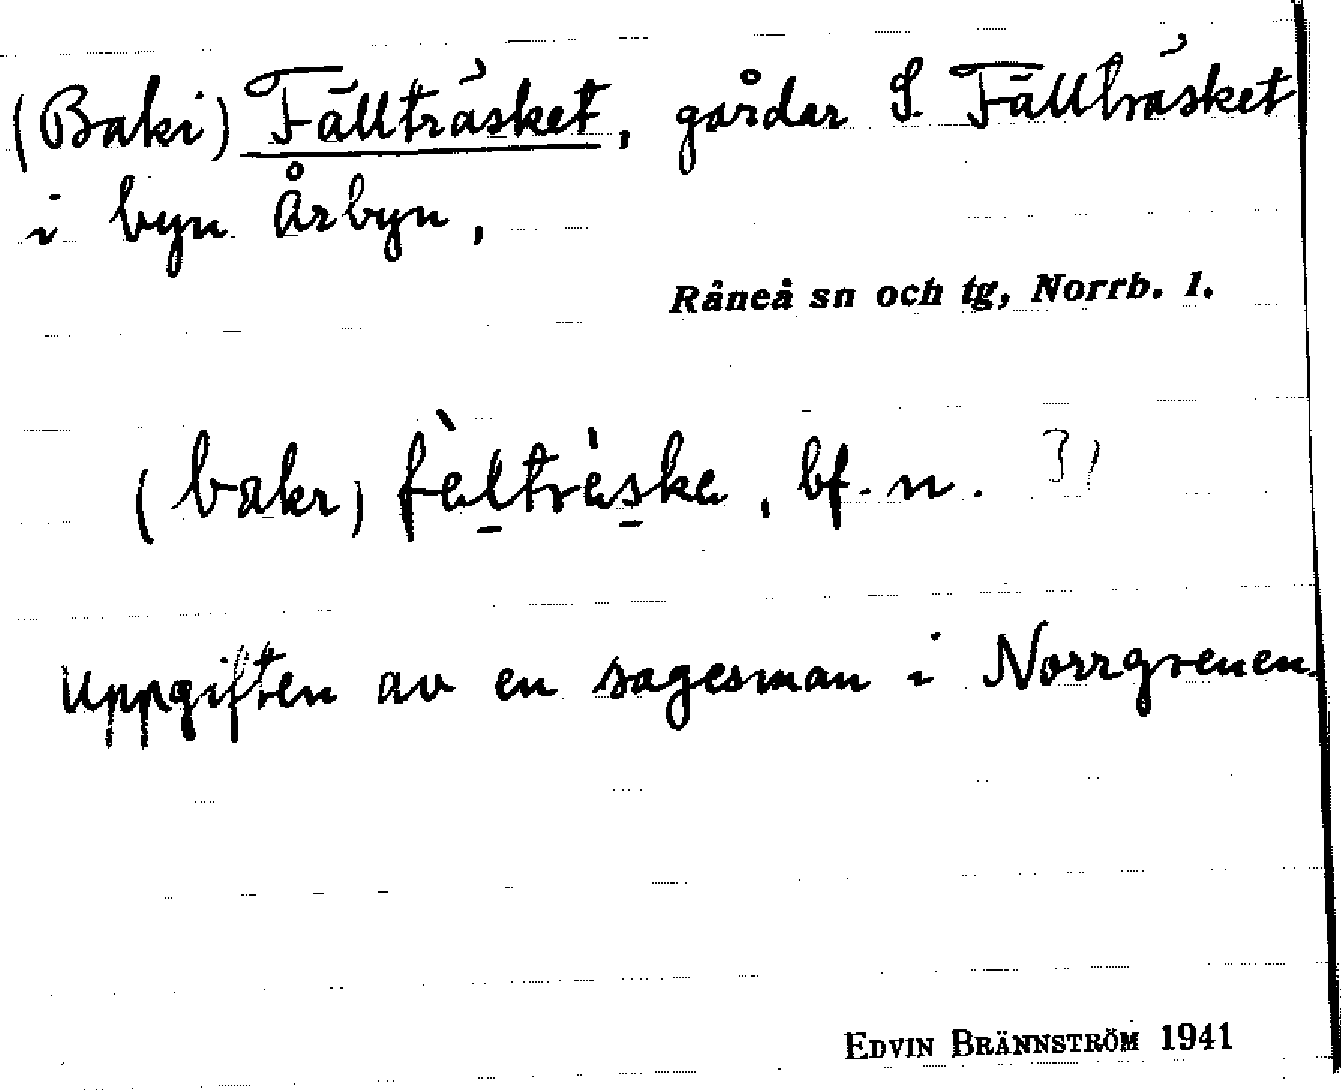 (Baki) Fällträsket, gårdar S. Fällträsket
i byn Årbyn,
Råneå sn och tg, Norrb. l.
(bakr) fèltrèska, bf. n.
Uppgiften av en sagesman i Norrgrenen.
EDVIN BRÄNNSTRÖM 1941